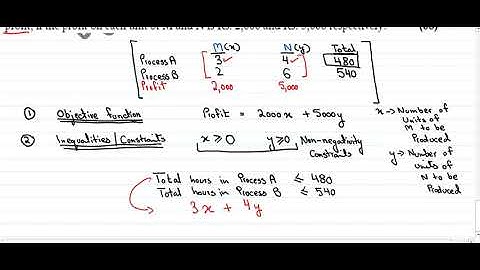 profit, if the profit on each unit of M and N is Rs. 2,000 and Rs. 5,000 respectively. (08)
M(x) N(y) Total
Process A 3 4 480
Process B 2 6 540
Profit 2,000 5,000
① Objective function Profit = 2000x + 5000y
x → Number of
Units of
M to be
Produced
② Inequalities / Constraints x ≥ 0 y ≥ 0 Non-negativity
Constraints
y → Number of
units of
N to be
Produced
Total hours in Process A ≤ 480
Total hours in Process B ≤ 540
3x + 4y